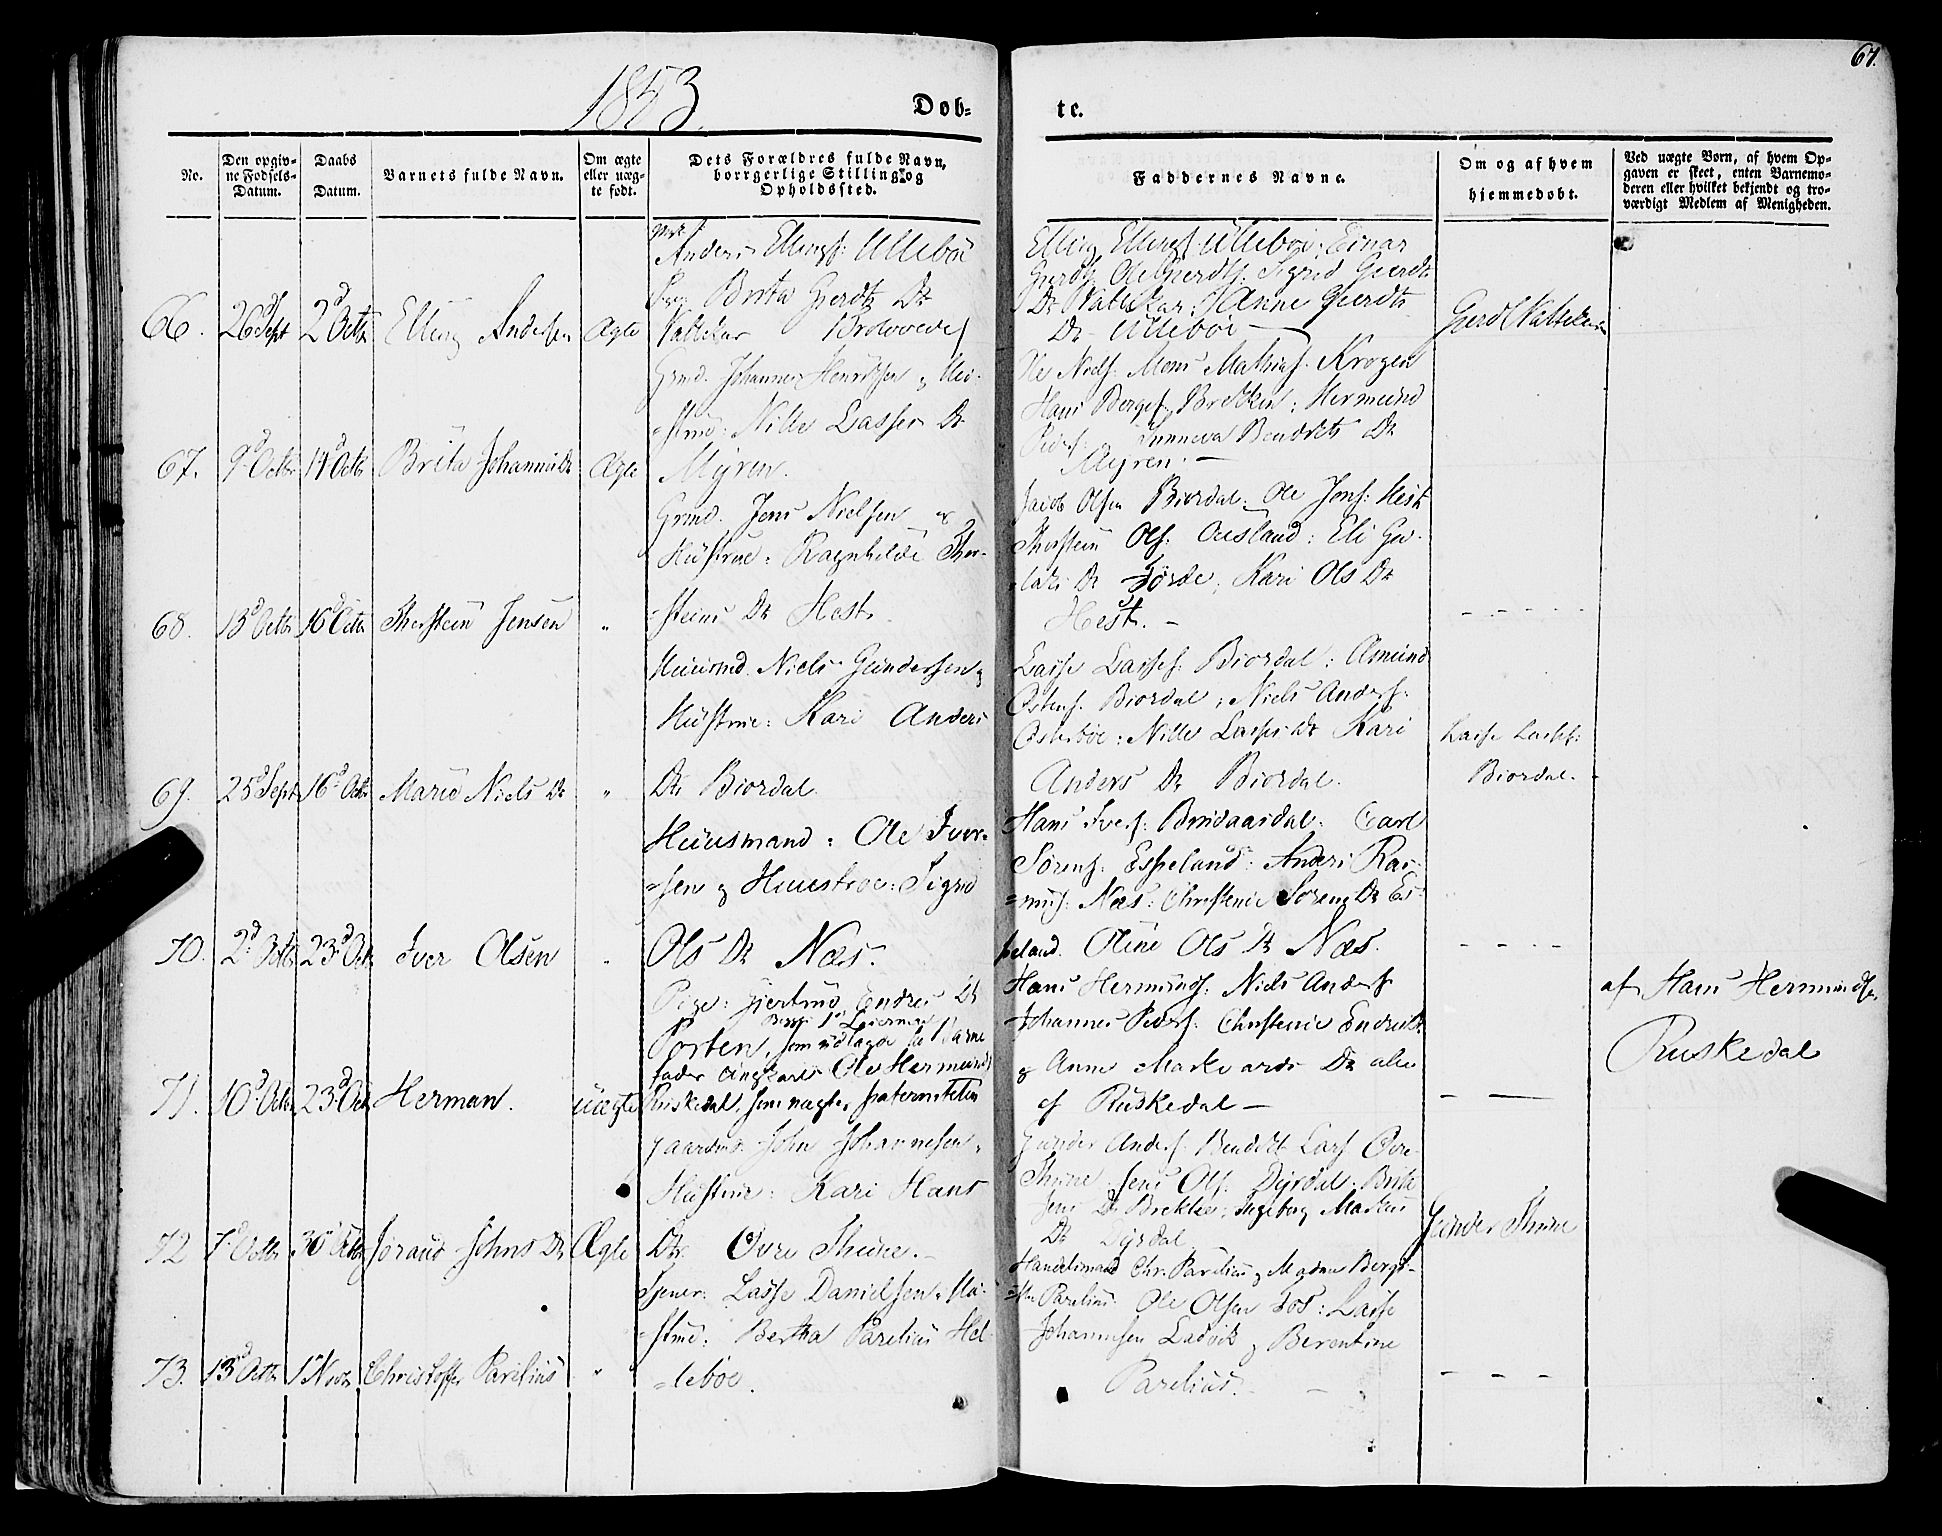 1853.
Døb-
te.
67.
No.
Den opgiv-
ne Fødsels-
Datum.
Daabs
Datum.
Barnets fulde Navn.
Om ægte
eller uæg-
te født.
Dets Forældres fulde Navn,
borrgerlige Stilling og
Opholdssted.
Faddernes Navne.
Om og af hvem
hjemmedøbt.
Ved uægte Børn, af hvem Op-
gaven er skeet, enten Barnemo-
deren eller hvilket bekjendt og tro-
værdigt Medlem af Menigheden.
66. 26d Sept 2d Octb Elling Andersen Ægte
Anders Ellings: Ullebøe
Brita Gjerdts Dr
Elling Ellings: Ullebøe: Einar
Gjerds: Ole Gjerds: Sigrid Gjerdts
Dr Anne Gjerdts
Dr Ullebøe —
67. 9d Octbr 14d Octb Brita Johannis Dr Ægte
Grmd. Johannes Henriksen & Hu-
-strue: Nille Lasses Dr
Myren.
Ole Niels: Mons Mathias: Krogen
Hans Berges: Brekken: Hermund
Peders: Sunneva Bendikts Dr
Myren. —
68. 13d Octbr 16d Octb Thorstein Jensen "
Grmd. Jens Nielsen &
Hustrue: Ragnhilde Thor-
-steins Dr Hest.
Jacob Olsen Biordal: Ole Jens: Hest
Thorstein Ols: Ousland: Eli
Dr Førde: Kari Ols Dr
Hest. —
69. 25d Sept 16d Octb Marie Niels Dr "
Huusmd. Niels Gundersen &
Hustrue: Kari Anders
Dr Biordal.
Lasse Lasses: Biordal: Asmund
Ostens: Biordal: Niels Anders:
Osterbøe: Nille Lasses Dr Kari
Anders Dr Biordal.
Lasse Lasses:
Biordal.
70. 2d Octbr 23d Octb Iver Olsen "
Huusmand: Ole Iver-
-sen & Huustroe: Sigrid
Ols Dr Næs.
Hans Ivers: Carl
Sørens: Espeland: Anders Ras-
-mus: Næs: Christenie Sørens Dr Es-
peland. Oline Ols Dr Næs.
71. 10d Octbr 23d Octb Herman. uægte
Pige: Gjertrud Endres Dr
Porten, som udlagde til Barne
fader Ungkarl Ole Hermunds:
Ruskedal, som nægter paterniteten
Hans Hermunds: Niels Anders:
Johannes Peders: Christenie Endres Dr
& Anne Markvards Dr alle
af Ruskedal —
af Hans Hermunds:
Ruskedal
72 7d Octbr 30d Octbr Joraud Johns Dr Ægte
Gaardmd. John Johannesen &
Hustrue: Kari Hans
Dr Øvre Thune. —
Gunder Anders: Bendikt Lars: Øvre
Thune: Jens Ols: Dyrdal: Brite
Jens Dr Brekke: Ingeborg Markus
Dr Dyrdal
Gunder Thune
73. 13d Octbr 1d Novb Christoffer Parelius "
Lasse Danielsen & Hu-
-strue: Bertha Parelius Hel-
-lebøe.
Handelsmand Chr. Parelius & Madam Berg-
Parelius: Ole Olsen: Lasse
Johannesen Ladvik & Berentine
Parelius. —